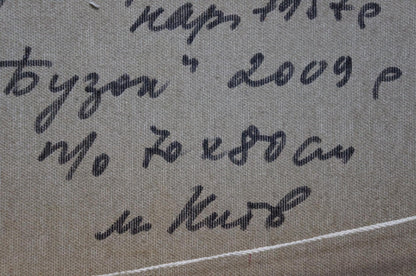 нар. 1957 р
Бузок" 2009 р
п/о 70х80 см
м Київ